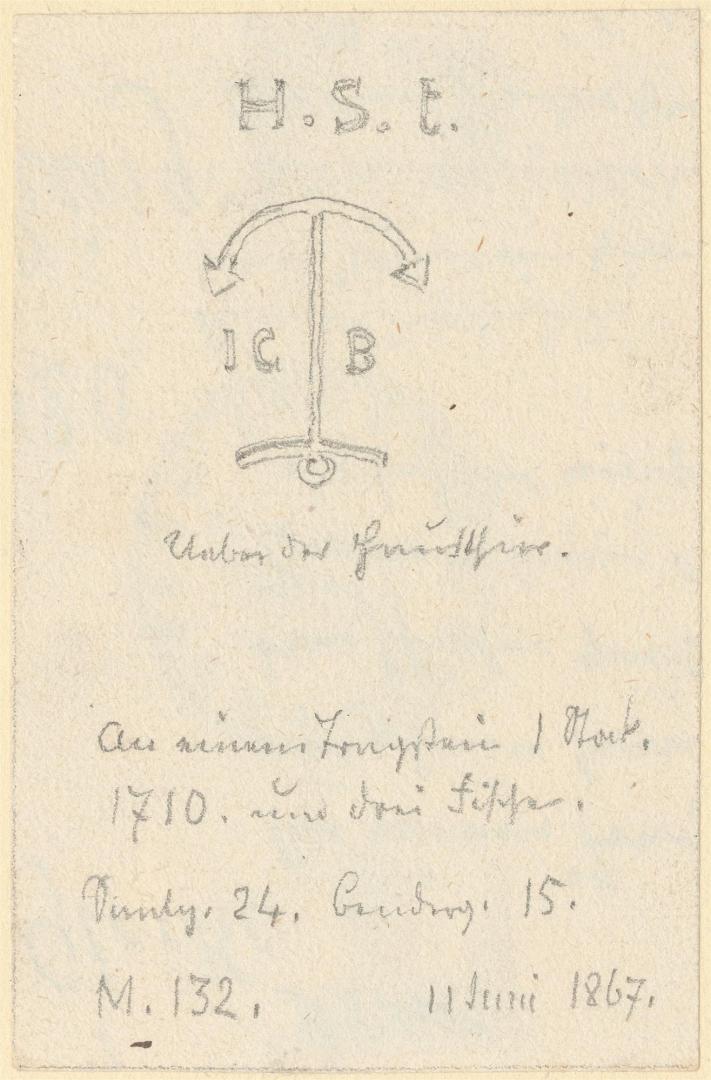 H. S. t.
IC B
Ueber der Hausthür.
An einem Tragstein 1 Stock.
1710. und drei Fische.
24. Benderg. 15.
M. 132. 11 Juni 1867.